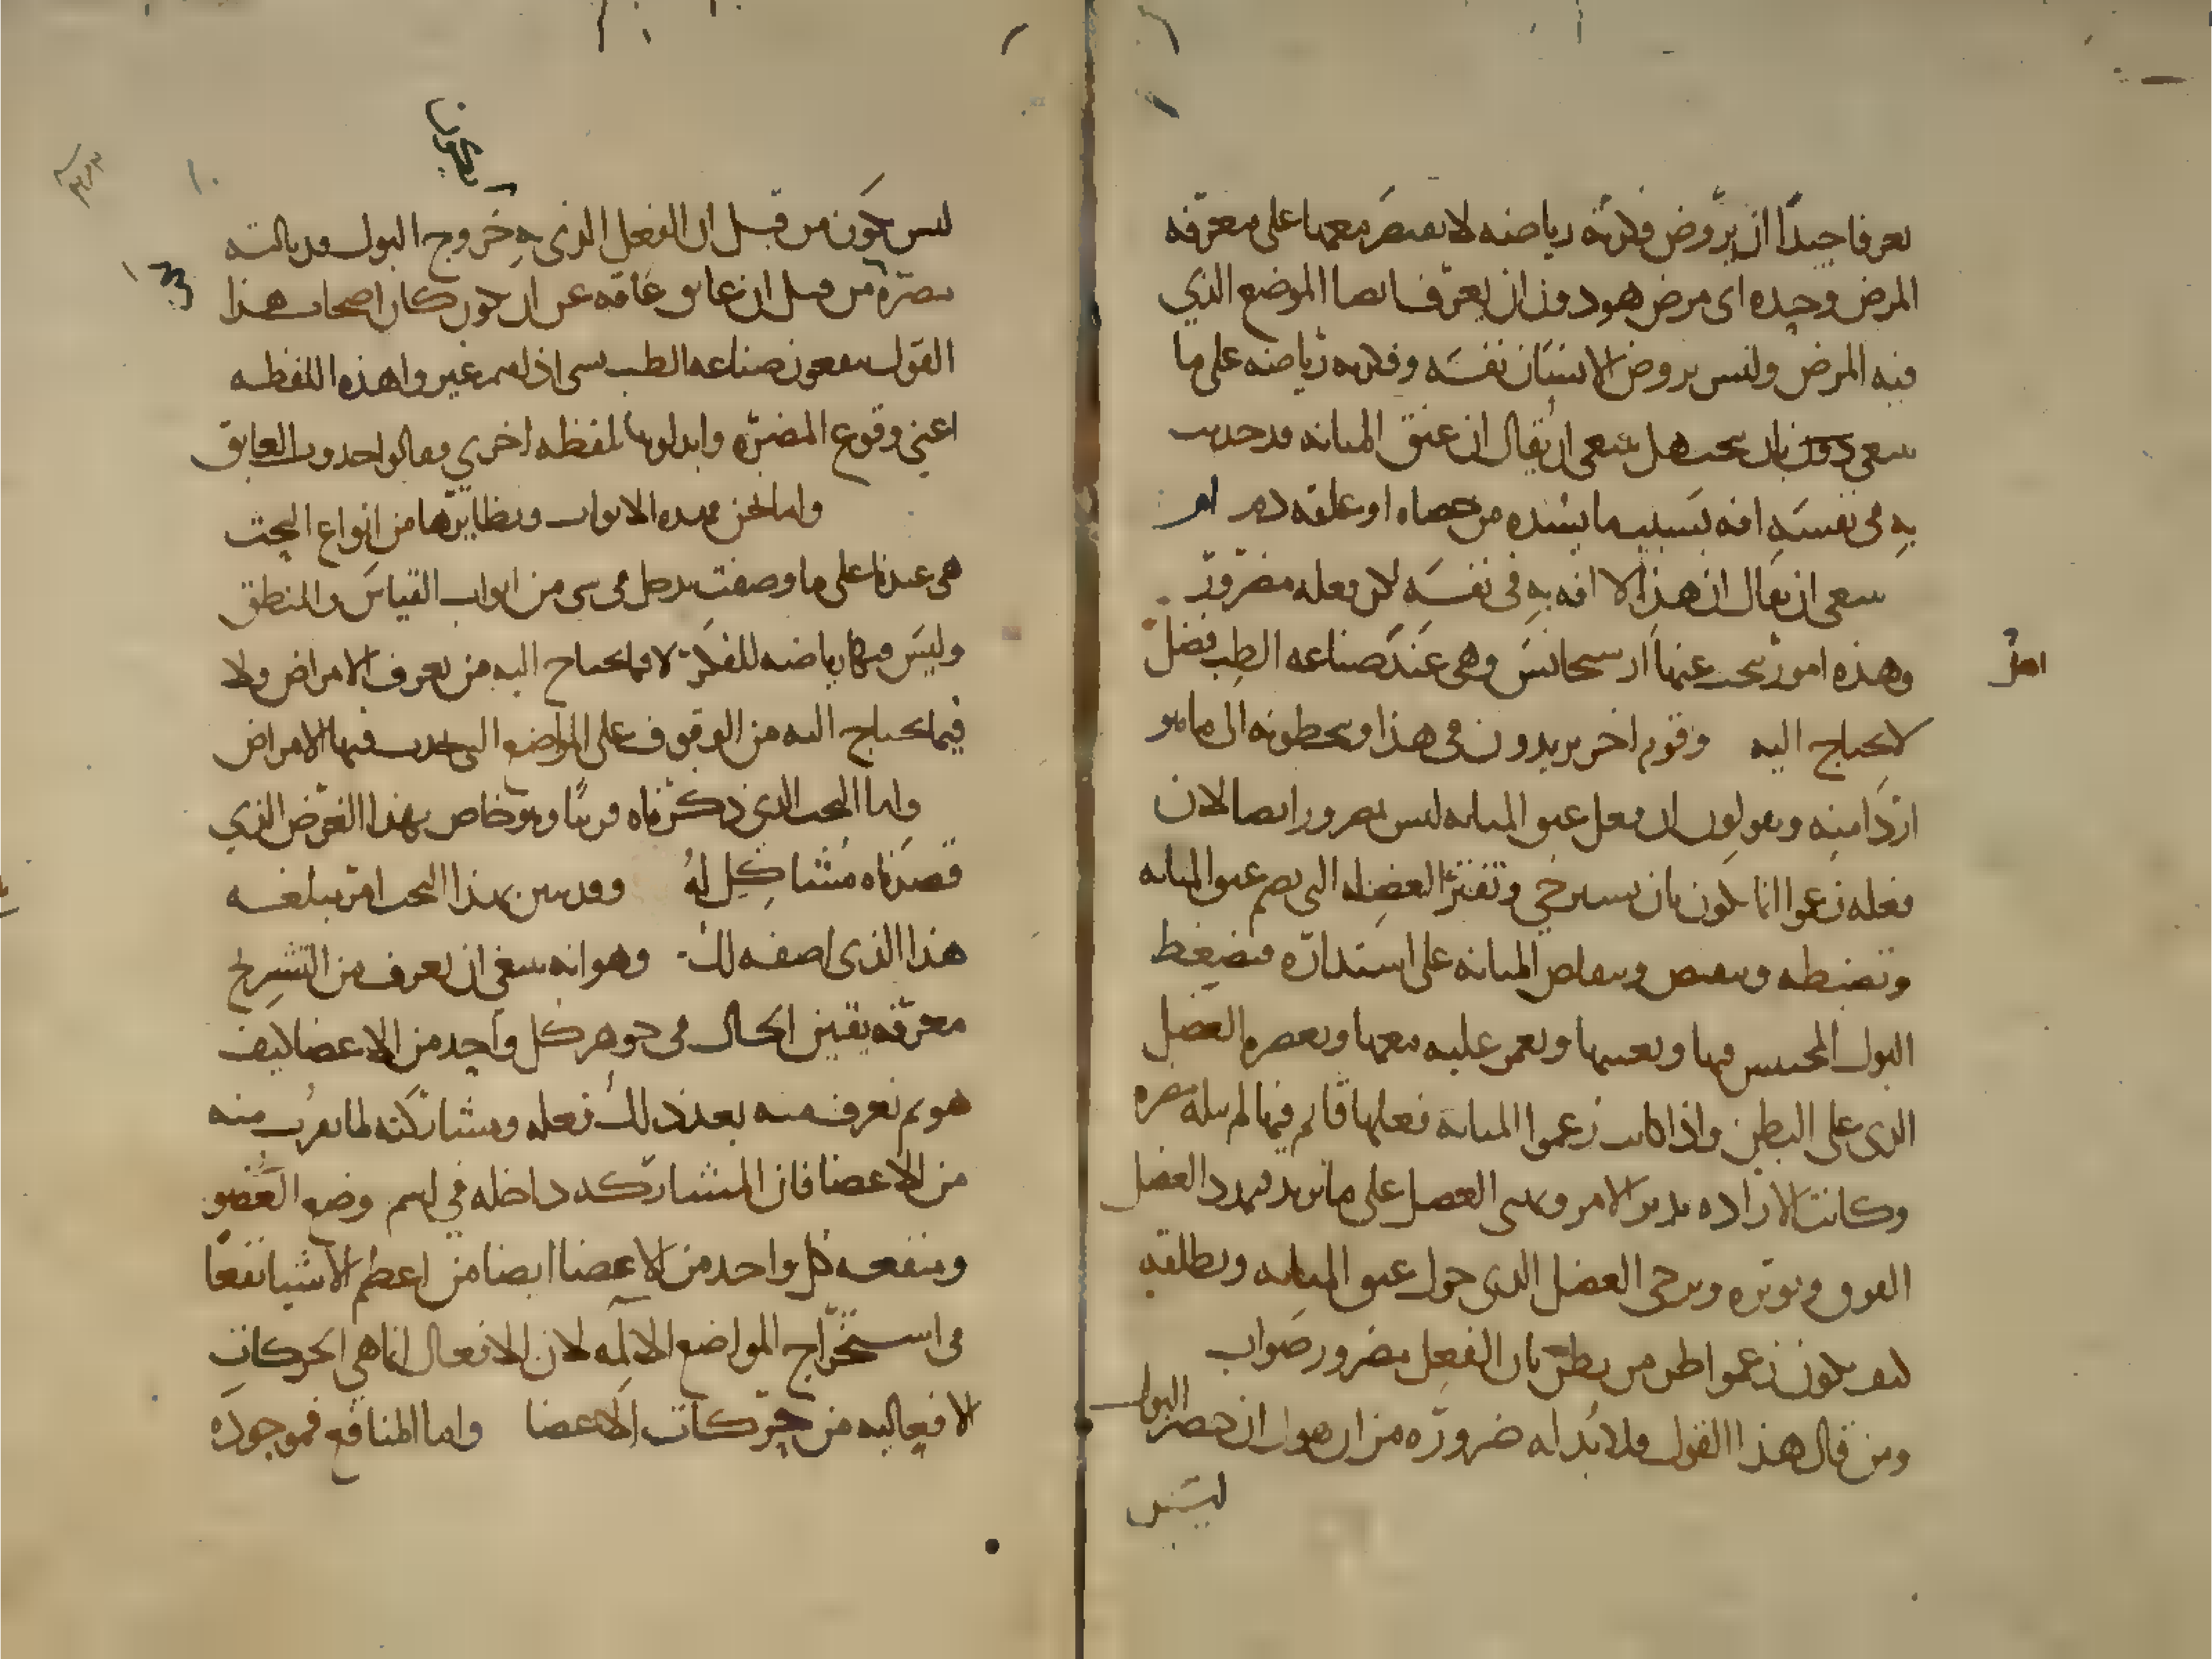 تعرفا جيدا ان يروض فكرته رياضه لا يقتصر معها على معرفه
المرض وحده اى مرض هو دون ان يعرف ايضا الموضع الذي
فيه المرض وليس يروض الانسان نفسه وفكره رياضه على ما
ينبغي دون بان يبحث هل ينبغي ان يقال ان عنق المثانه قد حدث
به في نفسه افه بسبب ما يسده من حصاه او علقه دم او
ينبغي ان يقال ان هذا لا افه به في نفسه لكن فعله مضرور
وهذه امور يبحث عنها ارسجانس وهي عند صناعه الطب فضل
امر
لا يحتاج اليه وقوم اخر يزيدون في هذا ويحطونه الى ما هو
اردا منه ويقولون ان فعل عنق المثانه ليس بمضرور ايضا لان
فعله زعموا انما يكون بان يسترخي وتفتر العضله التي تضم عنق المثانه
وتضبطه وينقبض وتتقلص المثانه على استداره فيضغط
البول المحتبس فيها ويعينها ويغمز عليه معها ويعصره العضل
الذي على البطن واذا كانت زعموا المثانه فعلها قائم فيها لم ينله مضره
وكانت الاراده تدبر الامر وتثني العضل على ما تريد فيمدد العضل
الفوق ويوتره ويرخي العضل الذي حول عنق المثانه ويطلقه
كيف يكون زعموا ظن من يظن بان الفعل مضرور صواب
ومن قال هذا القول فلا بد له ضروره من ان يقول ان حصر البول
ليس
يكون
ليس يكون من قبل ان الفعل الذي به خروج البول قد نالته
مضره من قبل ان عايق عاقه عن ان يكون كان اصحاب هذا
القول ينفعون صناعه الطب بشي اذا هم غيروا هذه اللفظه
اعني وقوع المضره وابدلوها بلفظه اخري وقالوا حدوث العايق
واما نحن فهذه الابواب ونظايرها من انواع البحث
هي عندنا على ما وصفت تدخل في شي من ابواب القياس والمنطق
وليس فيها رياضه للفكر لا فيما يحتاج اليه من تعرف الامراض ولا
فيما يحتاج اليه من الوقوف على المواضع التي تحدث فيها الامراض
واما البحث الذي ذكرناه قريبا وهو خاص بهذا الغرض الذي
قصدناه مشاكل له وقد يتبين بهذا البحث امر مبلغه
هذا الذي اصفه لك وهو انه ينبغي ان تعرف من التشريح
معرفه يقين الحال في جوهر كل واحد من الاعضا كيف
هو ثم تعرف منه بعد ذلك فعله ومشاركته لما يقرب منه
من الاعضا فان المشاركه داخله في اسم وضع العضو
ومنفعه كل واحد من الاعضا ايضا من اعظم الاشيا نفعا
في استخراج المواضع الالمه لان الافعال انما هي الحركات
الافعاليه من حركات الاعضا واما المنافع فموجوده